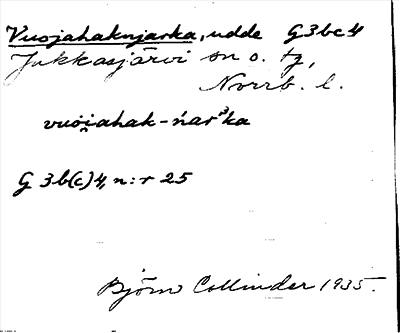 Vuojahaknjarka, udde G3bc4
Jukkasjärvi sn o. tg,
Norrb. l.
vuoi̯ahak-ńarᵌka
G 3b(c)4, n:r 25
Björn Collinder 1935.